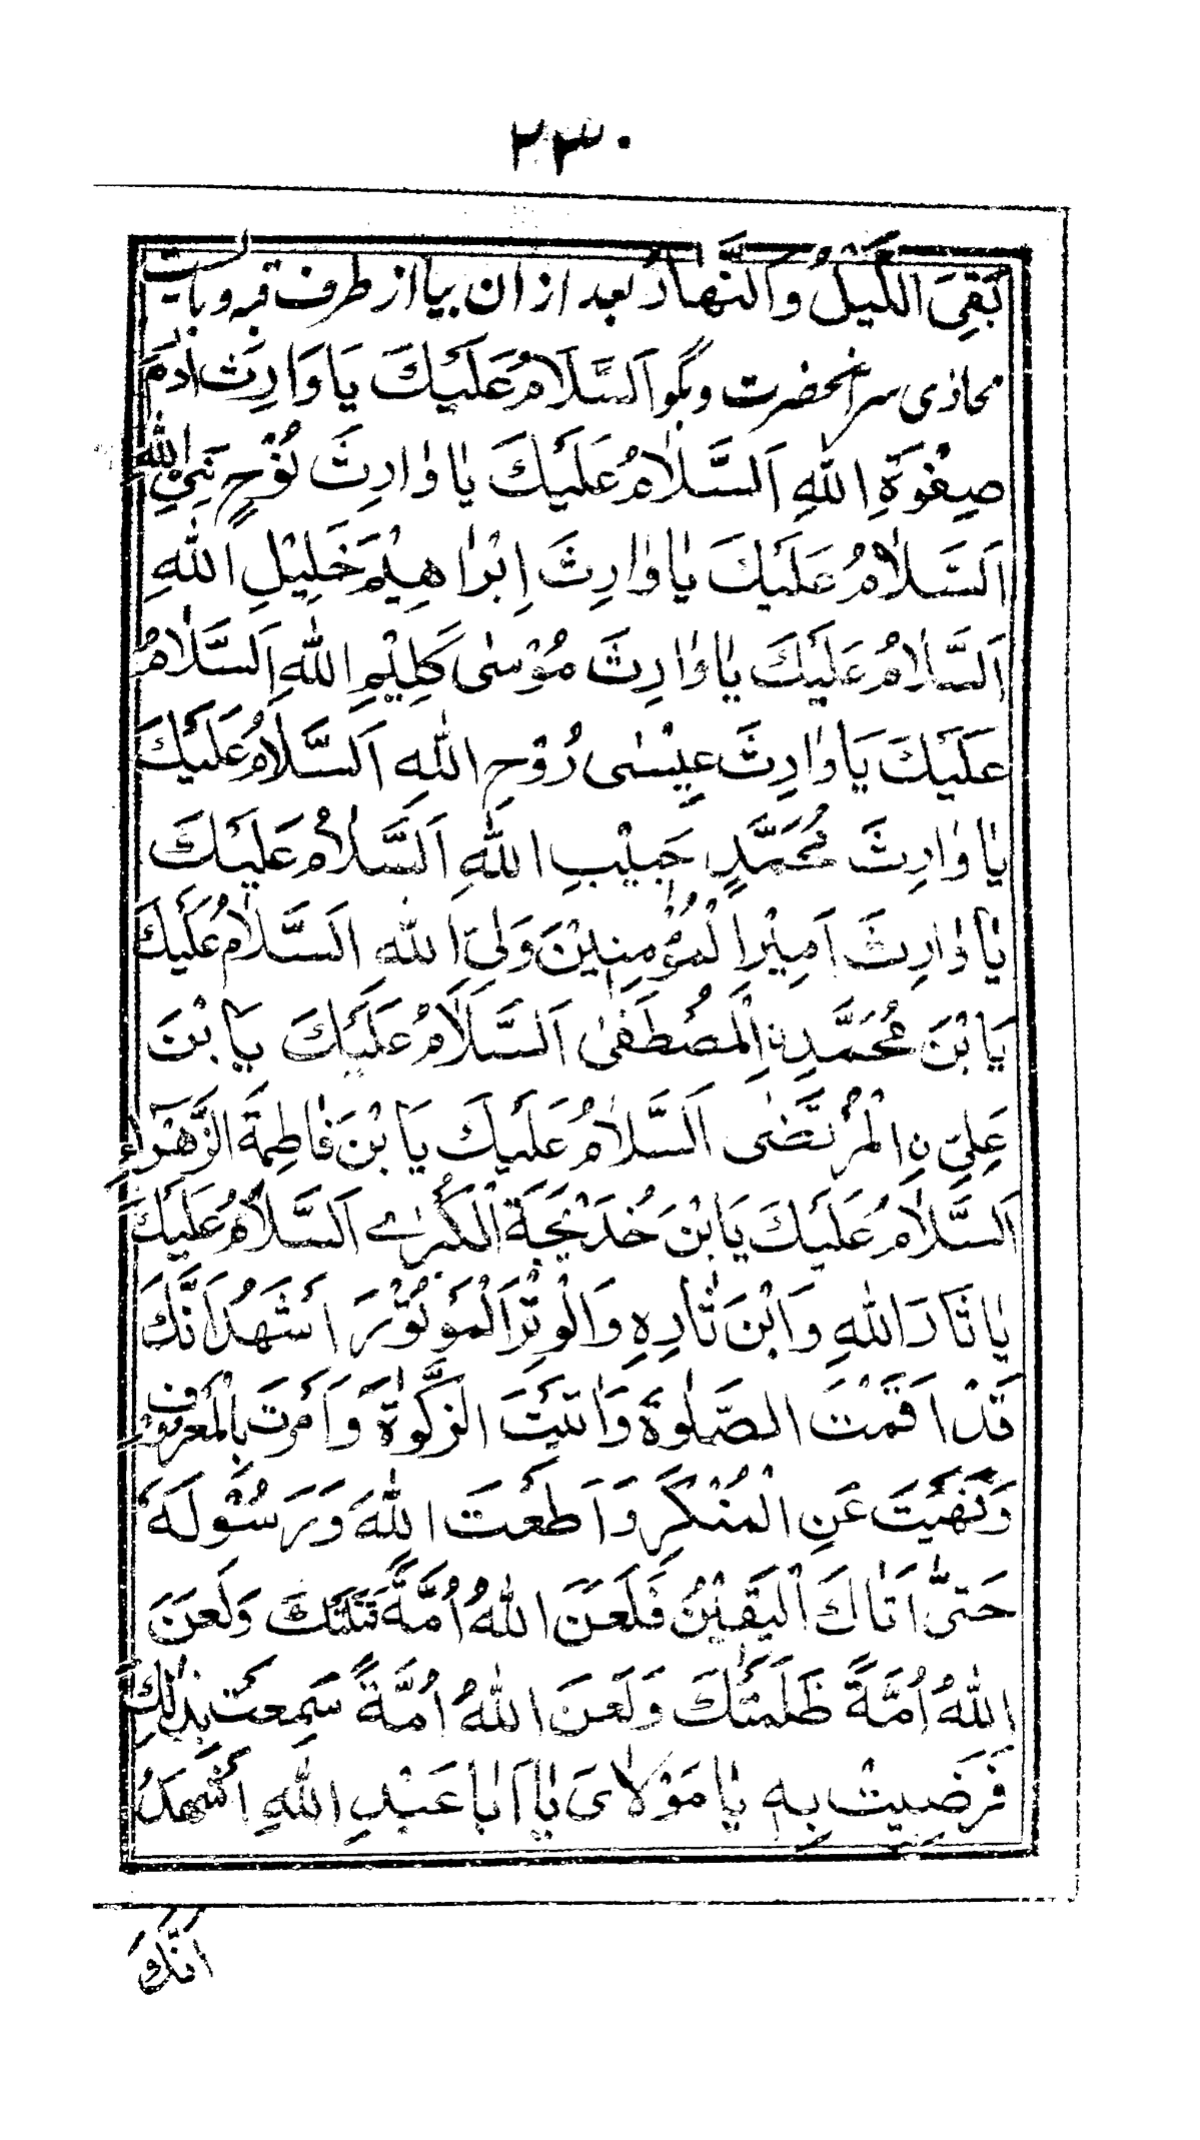 ۲۳۰
بَقِیَ اللَّیْلُ وَالنَّهَارُ بعد ازان بیا از طرف قبر و بایست
محاذی سر آنحضرت و بگو اَلسَّلَامُ عَلَیْكَ یَا وَارِثَ اٰدَمَ
صِفْوَةِ اللّٰهِ اَلسَّلَامُ عَلَیْكَ یَا وَارِثَ نُوْحٍ نَبِیِّ اللّٰهِ
اَلسَّلَامُ عَلَیْكَ یَا وَارِثَ اِبْرَاهِیْمَ خَلِیْلِ اللّٰهِ
اَلسَّلَامُ عَلَیْكَ یَا وَارِثَ مُوْسٰی کَلِیْمِ اللّٰهِ اَلسَّلَامُ
عَلَیْكَ یَا وَارِثَ عِیْسٰی رُوْحِ اللّٰهِ اَلسَّلَامُ عَلَیْكَ
یَا وَارِثَ مُحَمَّدٍ حَبِیْبِ اللّٰهِ اَلسَّلَامُ عَلَیْكَ
یَا وَارِثَ اَمِیْرِ الْمُؤْمِنِیْنَ وَلِیِّ اللّٰهِ اَلسَّلَامُ عَلَیْكَ
یَا بْنَ مُحَمَّدِ نِ الْمُصْطَفٰی اَلسَّلَامُ عَلَیْكَ یَا بْنَ
عَلِیِّ نِ الْمُرْتَضٰی اَلسَّلَامُ عَلَیْكَ یَا بْنَ فَاطِمَةَ الزَّهْرَآءِ
اَلسَّلَامُ عَلَیْكَ یَا بْنَ خُدَیْجَةَ الْکُبْرٰے اَلسَّلَامُ عَلَیْكَ
یَا ثَارَ اللّٰهِ وَابْنَ ثَارِهِ وَالْوِتْرَ الْمَوْتُوْرَ اَشْهَدُ اَنَّكَ
قَدْ اَقَمْتَ الصَّلٰوةَ وَاٰتَیْتَ الزَّکٰوةَ وَاَمَرْتَ بِالْمَعْرُوْفِ
وَنَهَیْتَ عَنِ الْمُنْکَرِ وَاَطَعْتَ اللّٰهَ وَرَسُوْلَهُ
حَتّٰی اَتَاكَ الْیَقِیْنُ فَلَعَنَ اللّٰهُ اُمَّةً قَتَلَتْكَ وَلَعَنَ
اللّٰهُ اُمَّةً ظَلَمَتْكَ وَلَعَنَ اللّٰهُ اُمَّةً سَمِعَتْ بِذٰلِكَ
فَرَضِیَتْ بِهِ یَا مَوْلَایَ یَا اَبَا عَبْدِ اللّٰهِ اَشْهَدُ
اَنَّكَ